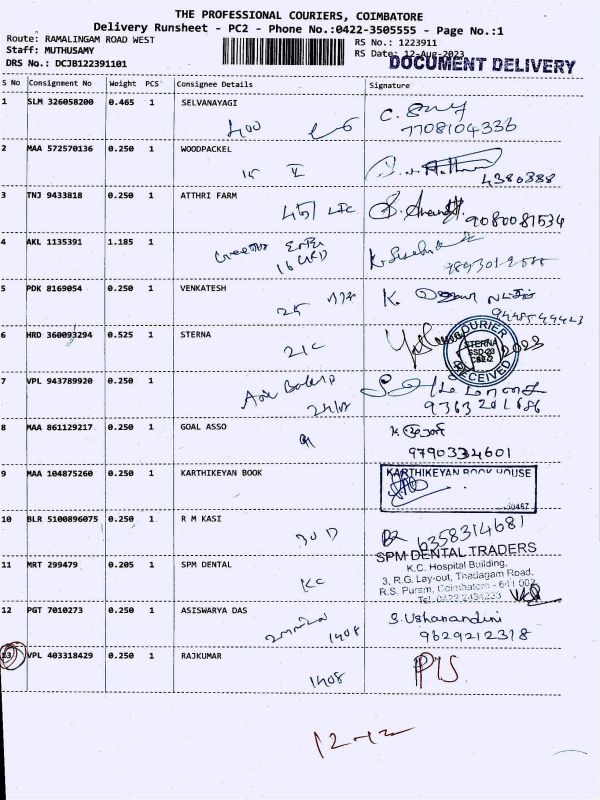 THE PROFESSIONAL COURIERS, COIMBATORE
Delivery Runsheet - PC2 - Phone No.:0422-3505555 - Page No.:1
Route: RAMALINGAM ROAD WEST
RS No.: 1223911
Staff: MUTHUSAMY
RS Date: 12-Aug-2023
DRS No.: DCJB122391101
DOCUMENT DELIVERY
S No Consignment No Weight PCS Consignee Details Signature
1 SLM 326058200 0.465 1 SELVANAYAGI
400
7708104336
2 MAA 572570136 0.250 1 WOODPACKEL
15 V
4380888
3 TNJ 9433818 0.250 1 ATTHRI FARM
451
9080081534
4 AKL 1135391 1.185 1
5 PDK 8169054 0.250 1 VENKATESH
25
K.
9448544423
6 HRD 360093294 0.525 1 STERNA
21C
COURIER
STERNA
RECEIVED
7 VPL 943789920 0.250 1
9363201686
8 MAA 861129217 0.250 1 GOAL ASSO
9790334601
9 MAA 104875260 0.250 1 KARTHIKEYAN BOOK
KARTHIKEYAN BOOK HOUSE
10 BLR 5100896075 0.250 1 R M KASI
30 D
6358314681
11 MRT 299479 0.205 1 SPM DENTAL
KC
SPM DENTAL TRADERS
K.C. Hospital Building,
3, R.G. Lay-out, Thadagam Road,
R.S. Puram, Coimbatore - 641 002
12 PGT 7010273 0.250 1 ASISWARYA DAS
1408
S. Ushanandini
9629212318
13 VPL 403318429 0.250 1 RAJKUMAR
1408
12-12